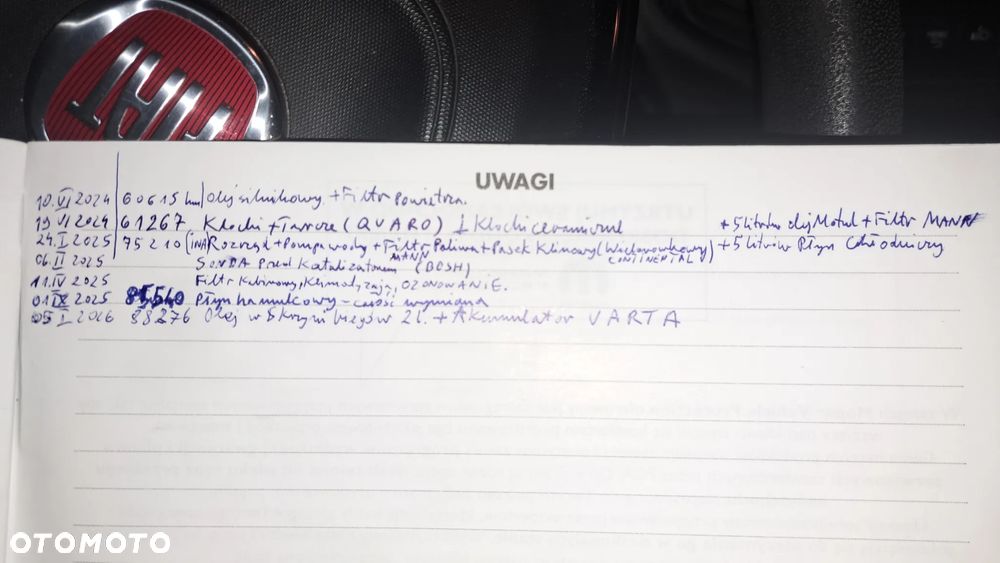 FIAT
UWAGI
10.VI 2024 60615 km Olej silnikowy + Filtr Powietrza.
19 VI 2024 61267 Klocki + Tarcze (QUARO) ↓ Klocki ceramiczne + 5 litrów olej Motul + Filtr MANN
24.I 2025 75210 (INA) Rozrząd + Pompa wody + Filtr Paliwa MANN + Pasek Klinowy (Wielorowkowy) CONTINENTAL + 5 litrów Płyn Chłodniczy
06.II 2025 SONDA Przed Katalizatorem (BOSH)
11.IV 2025 Filtr Kabinowy, OZONOWANIE.
01 IX 2025 85540 Płyn hamulkowy - całość wymiana
05 I 2026 88276 Olej w Skrzyni biegów 2l. + Akumulator VARTA
OTOMOTO